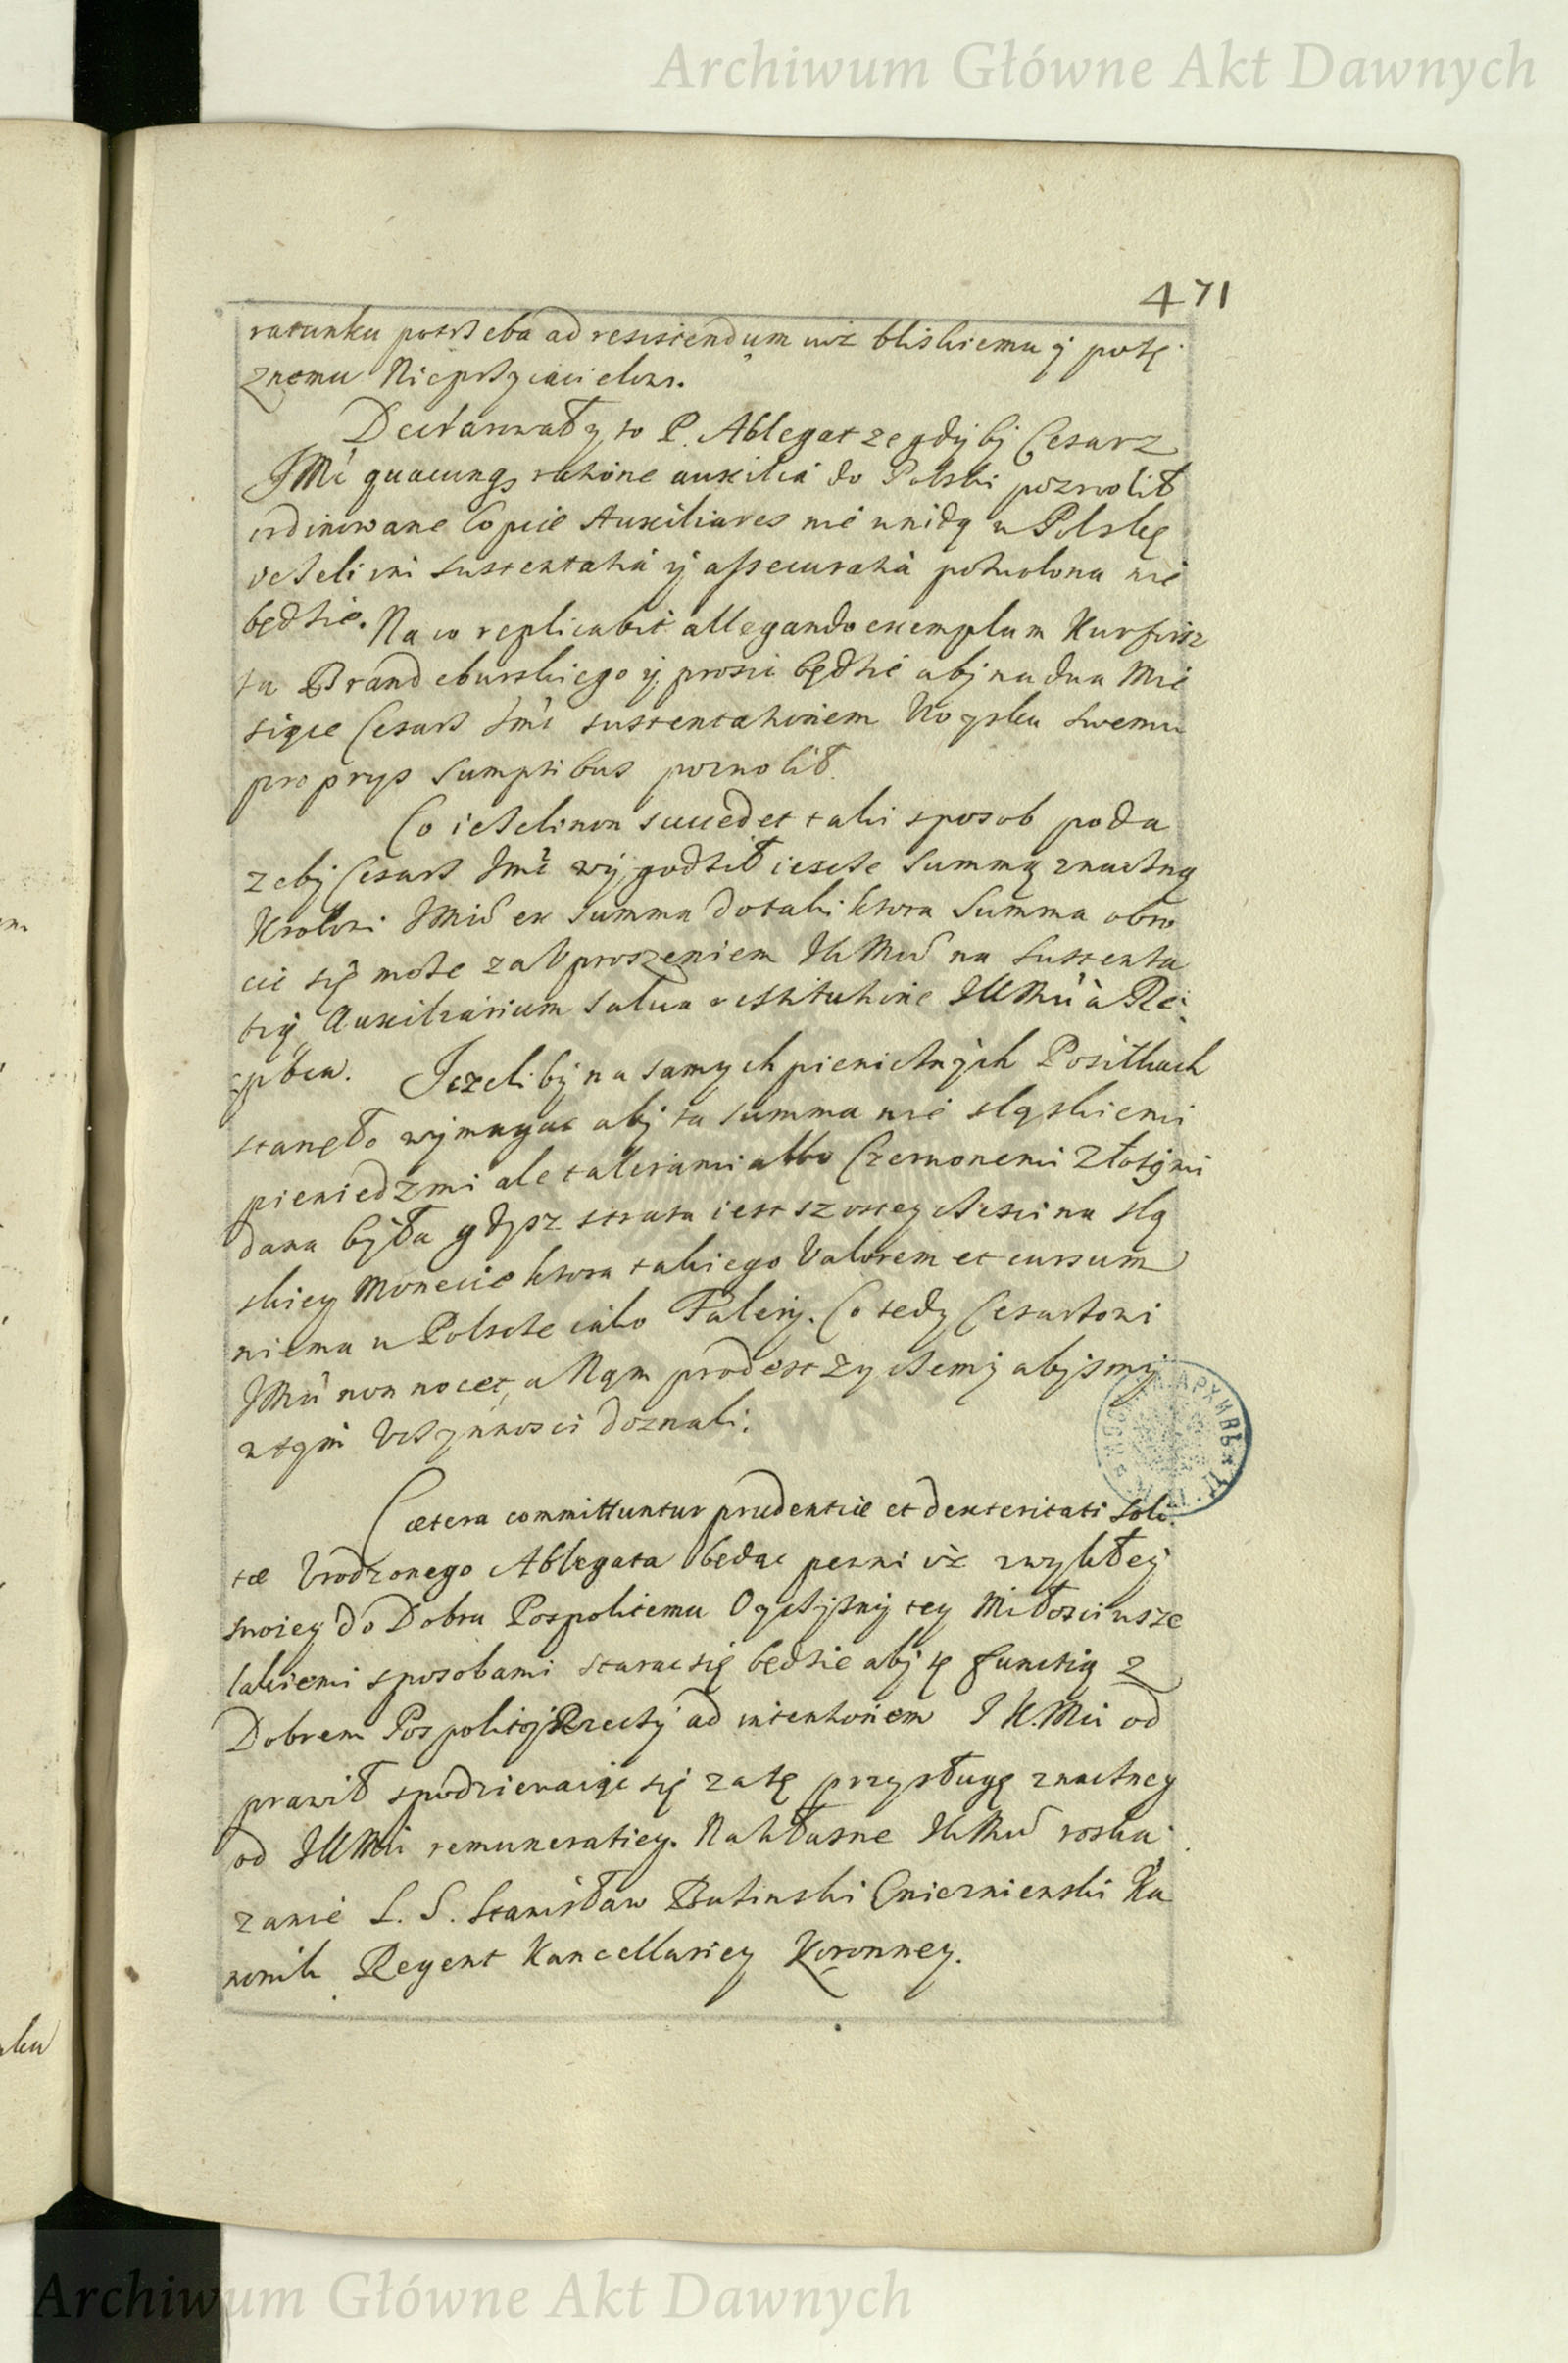 Archiwum Główne Akt Dawnych
471
ratunku potrzeba ad resistendum iuż bliskiemu y potę
żnemu Nieprzyiacielowi.
Declarował y to P. Ablegat ze gdyby Cesarz
JMć quacunq ratione auxilia do Polski pozwolił
ordinowane Copie Auxiliares nie unidą w Polskę
ieżeli im sustentatia y assecuratia pozwolona nie
będzie. Na co replicabit allegando exemplum Kurfirsz
ta Brandeburskiego y prosić będzie aby na dwa Mie
siące Cesarz Jmć sustentationem Woysku swemu
proprys sumptibus pozwolił.
Co ieżeli non succedet taki sposob poda
zeby Cesarz Jmć wygodził ieszcze summą znaczną
Krolowi JMći ex summa dotali ktora summa obro
cić się może za Uproszeniem JKMći na sustenta
tią Auxiliarium salva restitutione JKMći à Rei
pbca. Jezeliby na samych pieniężnych Posiłkach
stanęło wymagać aby ta summa nie sląskiemi
pieniedzmi ale talerami albo Czerwonemi Złotymi
dana była gdysz strata iest szostey częsci na slą
skiey Monecie ktora takiego Valorem et cursum
niema w Polszcze iako Talery. Co tedy Cesarzowi
JMći non nocet, a Nąm prodest zyczemy abysmy
w tym Uczynnosci doznali.
Cætera committuntur prudentiæ et dexteritati soli
tæ Urodzonego Ablegata będąc pewni iż zwykłey
swoiey do Dobra Pospolitemu Oyczyzny tey Miłosci wsze
lakiemi sposobami starac się będzie aby tę functią z
Dobrem Pospolitey Rzeczy ad intentionem J K.Mći od
prawił spodziewaiąc się zatę przysługę znaczney
od JKMći remuneratiey. Na własne JKMći roska
zanie L. S. Stanisław Buzinski Gnieznienski Ka
nonik Regent Kancellariey Koronney.
Archiwum Główne Akt Dawnych